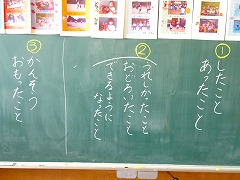 ①
したこと
あったこと
②
うれしかったこと
おどろいたこと
できるように
なったこと
③
かんそう
おもったこと